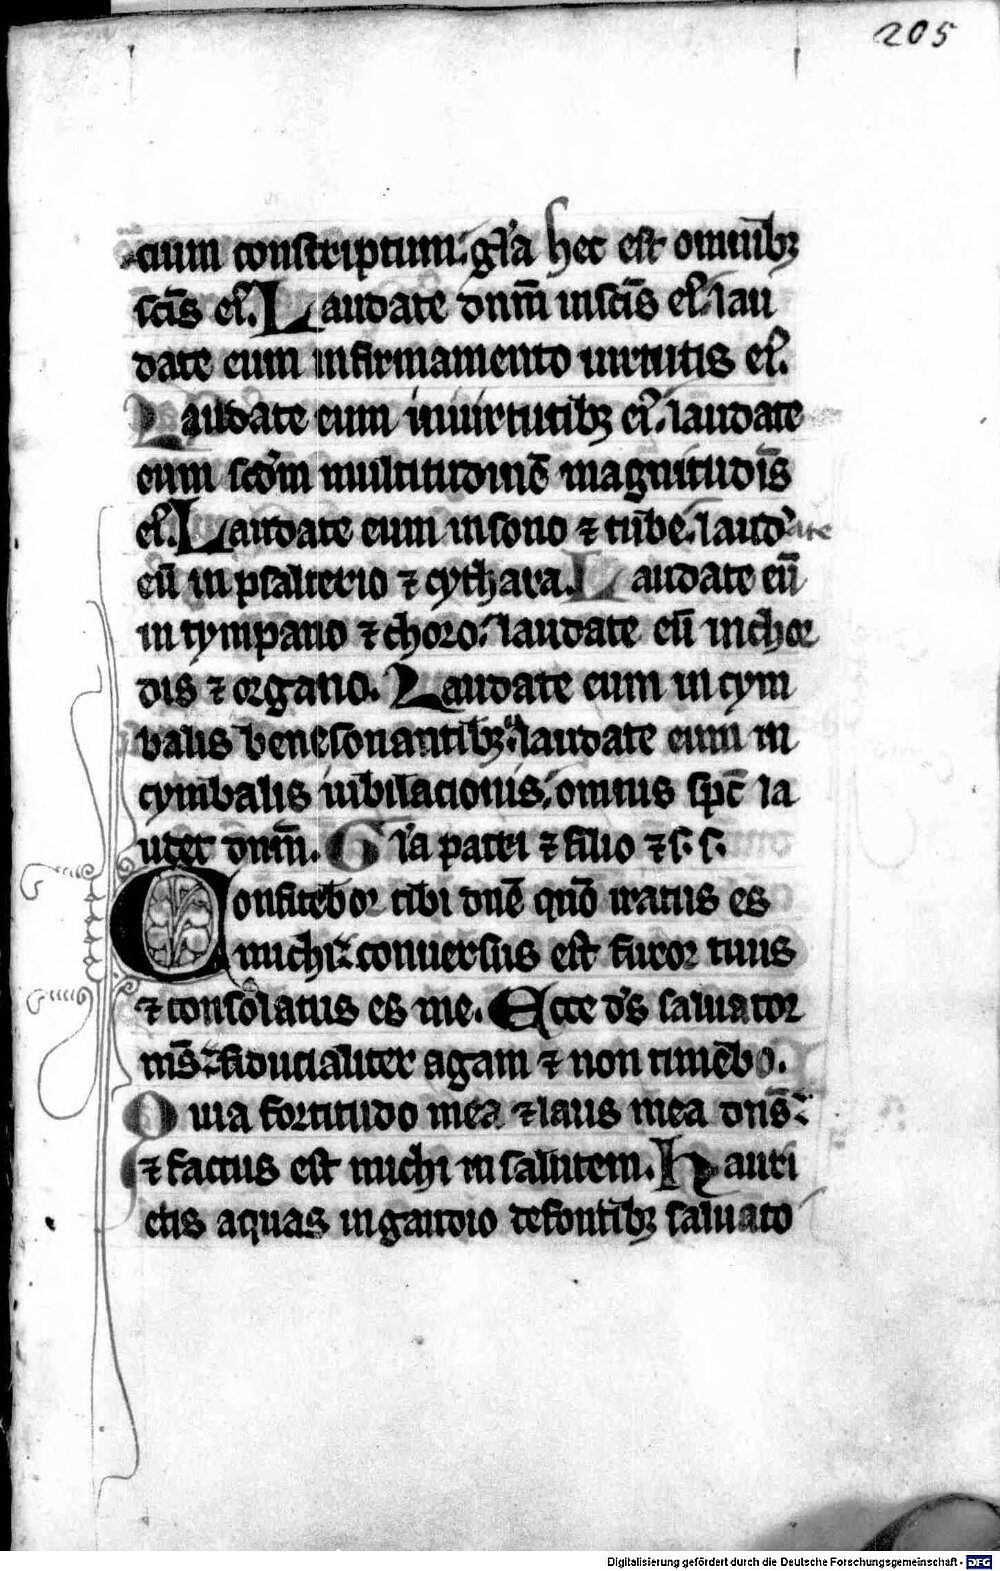 205
cium conscriptum. gl'a hec est omnibꝫ
sc̄is ei'. Laudate dnm̄ in sc̄is ei'. lau
date eum in firmamento uirtutis ei'.
Laudate eum in uirtutibꝫ ei'. laudate
eum scdm̄ multitudinē magnitudīs
ei'. Laudate eum in sono ⁊ tube. laudate
eū in psalterio ⁊ cythara. Laudate eū
in tympano ⁊ choro. laudate eū in chor
dis ⁊ organo. Laudate eum in cym
balis benesonantibꝫ. laudate eum in
cymbalis iubilacionis. omnis spc̄ la
udet dnm̄. Gl'a patri ⁊ filio ⁊ s. s.
Confitebor tibi dnē qūo iratus es
michi. conuersus est furor tuus
⁊ consolatus es me. Ecce d's saluator
m̄s. fiducialiter agam ⁊ non timebo.
Quia fortitudo mea ⁊ laus mea dn̄s.
⁊ factus est michi in salutem. Hauri
etis aquas in gaudio de fontibꝫ saluato
Digitalisierung gefördert durch die Deutsche Forschungsgemeinschaft - DFG